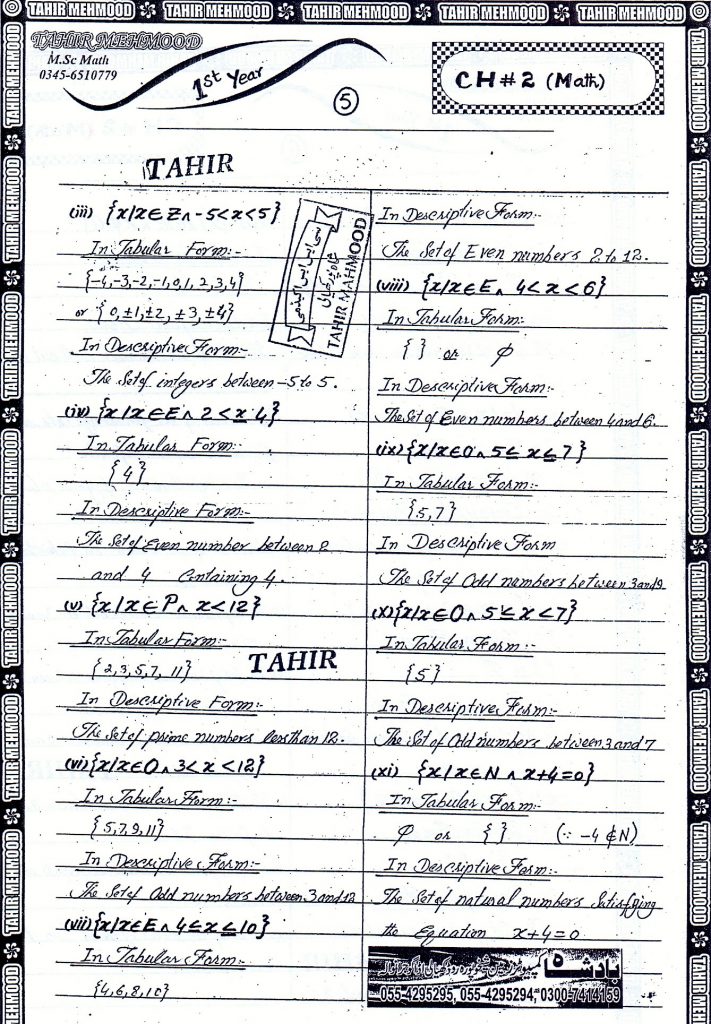 TAHIR MEHMOOD TAHIR MEHMOOD TAHIR MEHMOOD TAHIR MEHMOOD TAHIR MEHMOOD
TAHIR MEHMOOD
M.Sc Math
0345-6510779
1st Year
5
CH # 2 (Math)
TAHIR
(iii) {x/x∈Z∧ -5<x<5}
In Tabular Form:-
{-4,-3,-2,-1,0,1,2,3,4}
or {0,±1,±2, ±3,±4}
In Descriptive Form:-
The Set of integers between -5 to 5.
(iv) {x/x∈E∧ 2<x≤4}
In Tabular Form:-
{4}
In Descriptive Form:-
The Set of Even number between 2
and 4 Containing 4.
(v) {x/x∈P∧ x<12}
In Tabular Form:-
{2,3,5,7, 11}
TAHIR
In Descriptive Form:-
The Set of prime numbers less than 12.
(vi) {x/x∈O∧ 3<x<12}
In Tabular Form:-
{5,7,9,11}
In Descriptive Form:-
The Set of Odd numbers between 3 and 12
(vii) {x/x∈E∧ 4≤x≤10}
In Tabular Form:-
{4,6,8,10}
TAHIR MAHMOOD
In Descriptive Form:-
The Set of Even numbers 2 to 12.
(viii) {x/x∈E∧ 4<x<6}
In Tabular Form:-
{ } or φ
In Descriptive Form:-
The Set of Even numbers between 4 and 6.
(ix) {x/x∈O∧ 5≤x≤7}
In Tabular Form:-
{5,7}
In Descriptive Form
The Set of Odd numbers between 3 and 9
(x) {x/x∈O∧ 5≤x<7}
In Tabular Form:-
{5}
In Descriptive Form:-
The Set of Odd numbers between 3 and 7
(xi) {x/x∈N ∧ x+4=0}
In Tabular Form:-
φ or { } (∵ -4 ∉N)
In Descriptive Form:-
The Set of natural numbers Satisfying
the Equation x+4=0
بادشاہ
055-4295295, 055-4295294, 0300-7414159